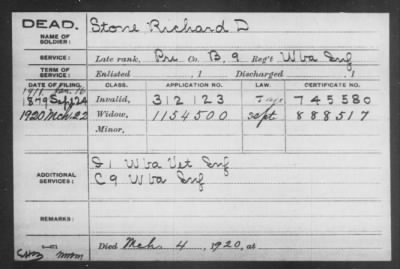 DEAD.
NAME OF SOLDIER: Stone Richard D
SERVICE: Late rank, Pri Co. B, 9 Reg't W Va Inf
TERM OF SERVICE: Enlisted , 1 Discharged , 1
DATE OF FILING. CLASS. APPLICATION NO. LAW. CERTIFICATE NO.
1879 Sept 24 Invalid, 312123 745580
1920 Mch. 22 Widow, 1154500 Sept 888517
Minor,
ADDITIONAL SERVICES: I 1 W Va Vet Inf
C 9 W Va Inf
REMARKS:
Died Mch. 4, 1920, at